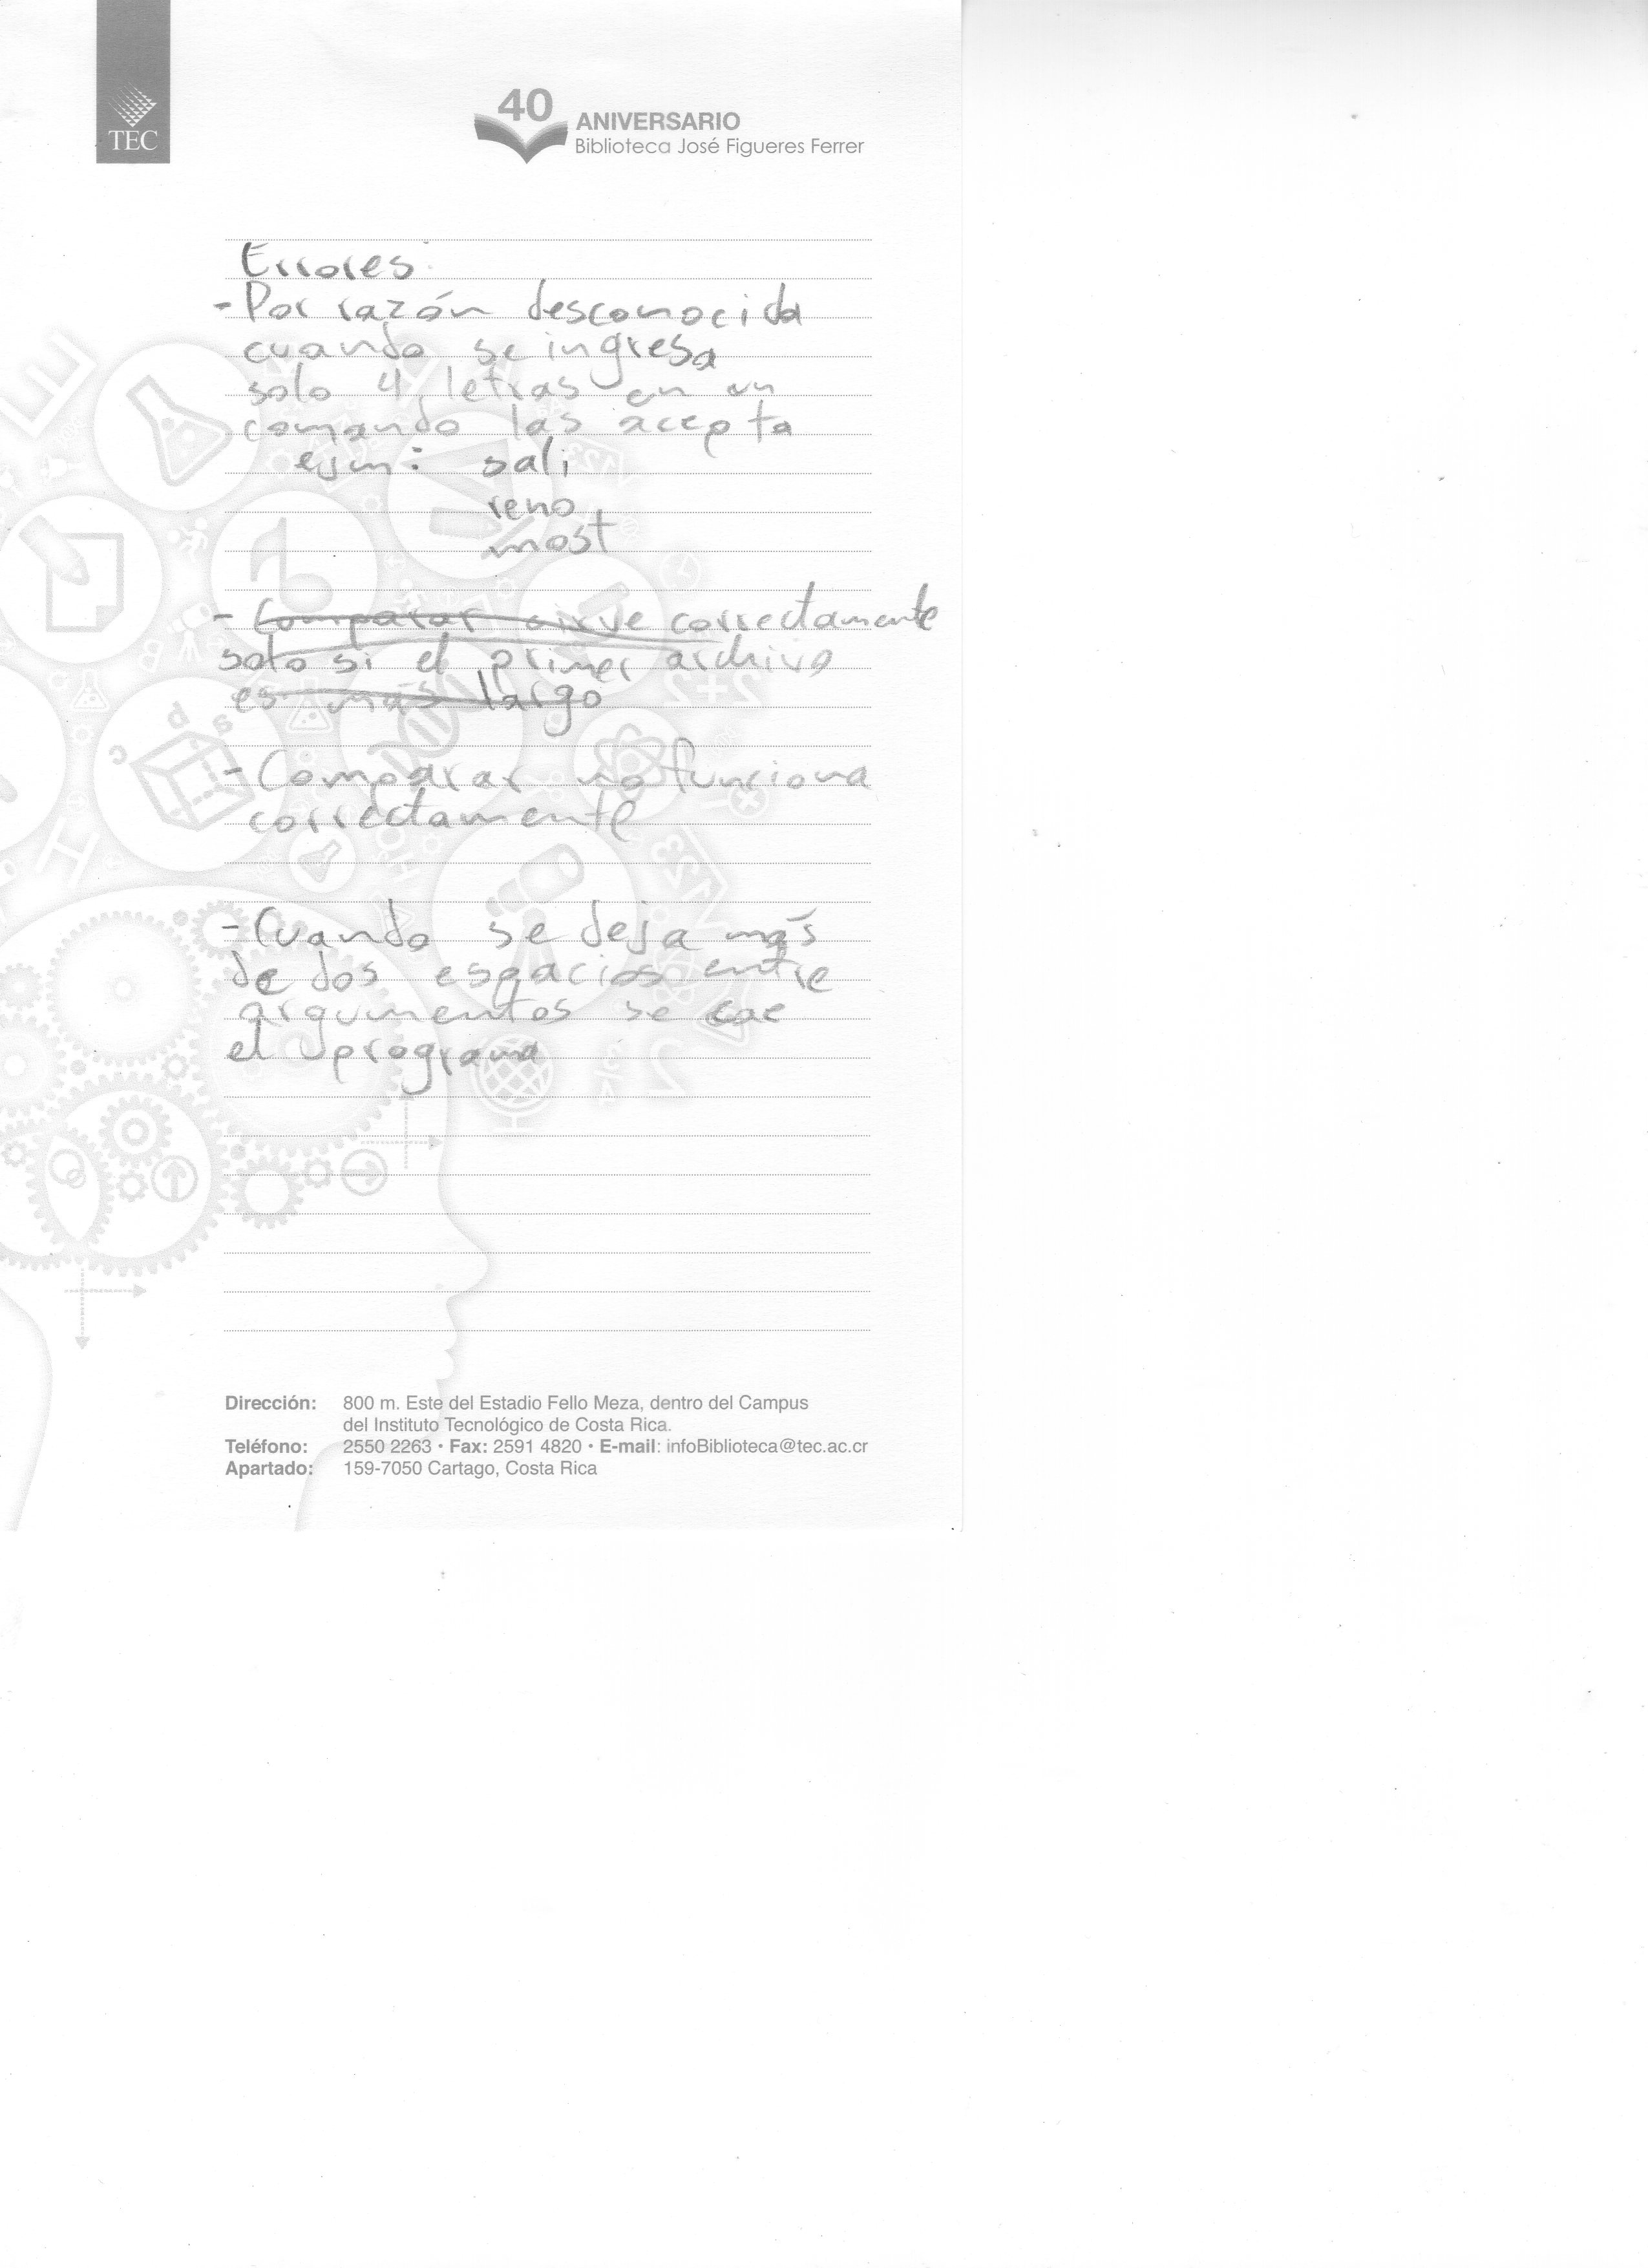 TEC
40
ANIVERSARIO
Biblioteca José Figueres Ferrer
Errores:
- Por razón desconocida
cuando se ingresa
solo 4 letras en un
comando las acepta
ejm: sali
reno
most
- Comparar sirve correctamente
solo si el primer archivo
es más largo
- Comparar no funciona
correctamente
- Cuando se deja más
de dos espacios entre
argumentos se cae
el programa
Dirección: 800 m. Este del Estadio Fello Meza, dentro del Campus
del Instituto Tecnológico de Costa Rica.
Teléfono: 2550 2263 • Fax: 2591 4820 • E-mail: infoBiblioteca@tec.ac.cr
Apartado: 159-7050 Cartago, Costa Rica